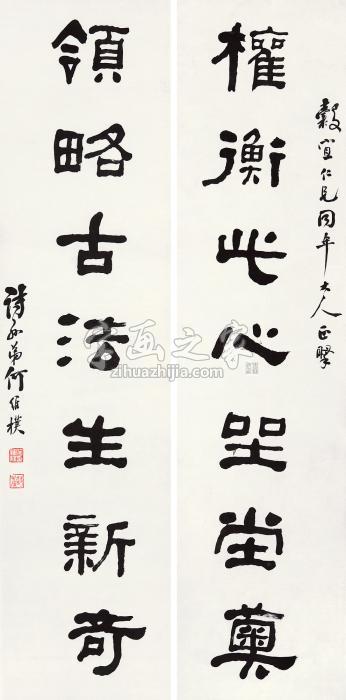 穀宜仁兄同年大人正
權衡此心坐堂
領略古法生新奇
詩孫弟何維樸
字画之家
zihuazhijia.com